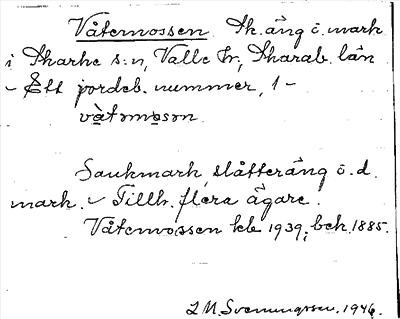 Våtemossen. Sk. äng o. mark
i Skarke s:n, Valle hr, Skarab. län
- Ett jordeb. nummer, 1 -
våtəmɷsən.
Sankmark, slåtteräng o. d.
mark. - Tillh. flera ägare.
Våtemossen kb 1939; bek. 1885.
L M. Svenungsson. 1946.